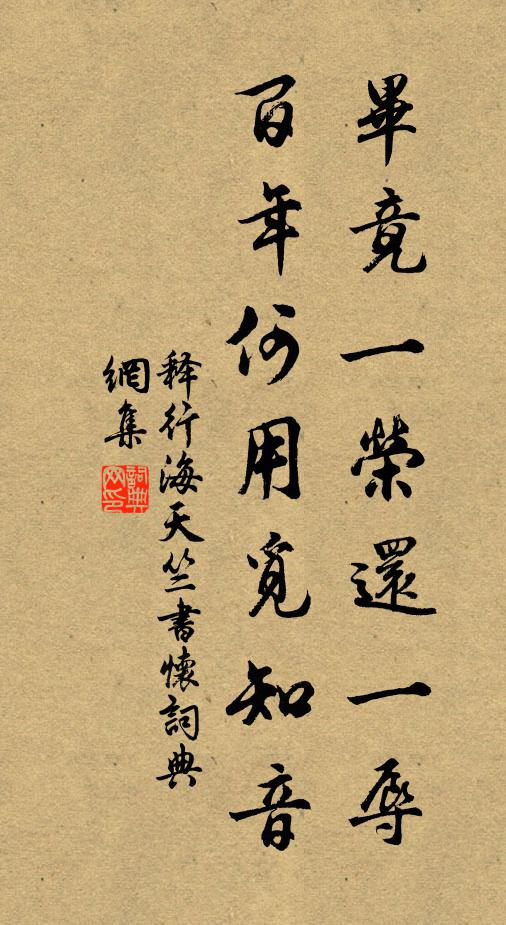 畢竟一榮還一辱
百年何用覓知音
释行海天竺書懷詞典
網集
詞典
网印